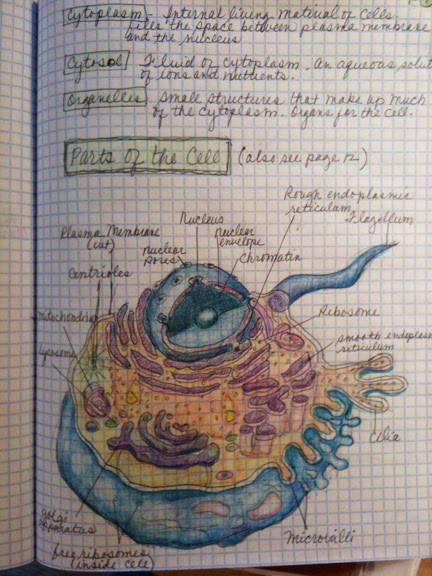 Cytoplasm - Internal living material of cells.
fills the space between plasma membrane
and the nucleus
Cytosol - Fluid of cytoplasm. An aqueous solut
of ions and nutrients.
Organelles - small structures that make up much
of the cytoplasm. Organs for the cell.
Parts of the Cell (also see page 12)
Rough endoplasmic
reticulum
Flagellum
Nucleus
Plasma Membrane
(cut)
nuclear
envelope
nuclear
pores
Chromatin
Centrioles
mitochondria
Ribosome
lysosome
smooth endoplas
reticulum
Cilia
golgi
apparatus
Microvilli
free ribosomes
(inside cell)